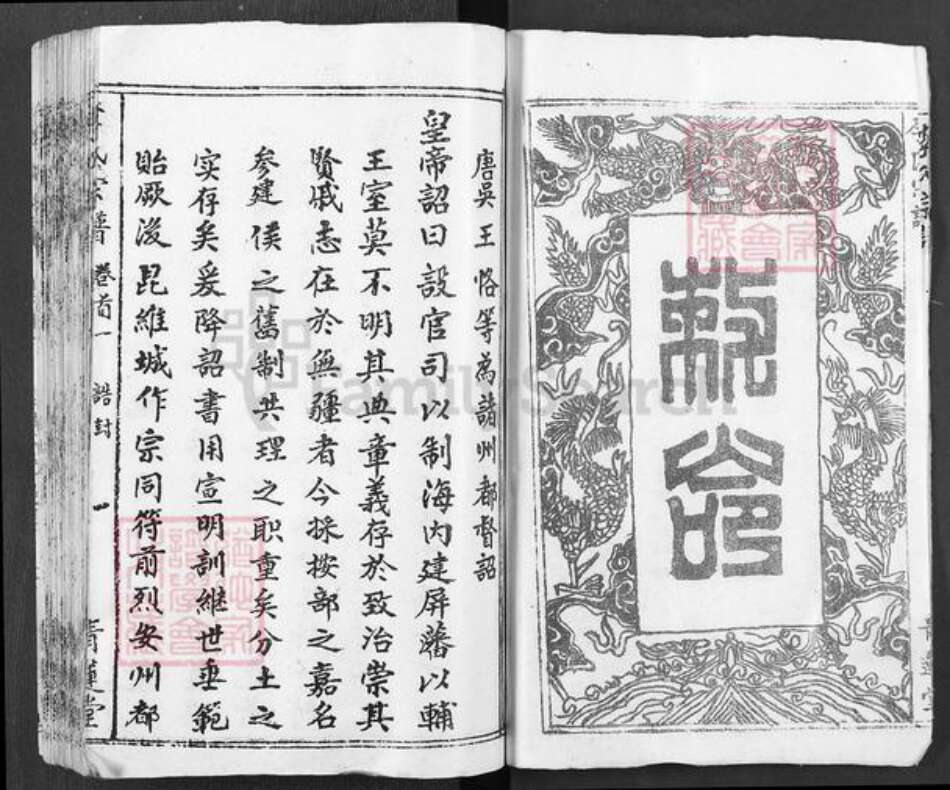 敕命
唐吳王恪等為諸州都督詔
皇帝詔曰設官司以制海內建屏藩以輔
王室莫不明其典章義存於致治崇其
賢戚志在於無疆者今採按部之嘉名
參建侯之舊制共理之职重矣分土之
实存矣爰降詔書用宣明訓継世垂範
貽厥後昆維城作宗同符前烈安州都
氏宗譜 卷首一 誥封 一 青蓮堂
FamilySearch